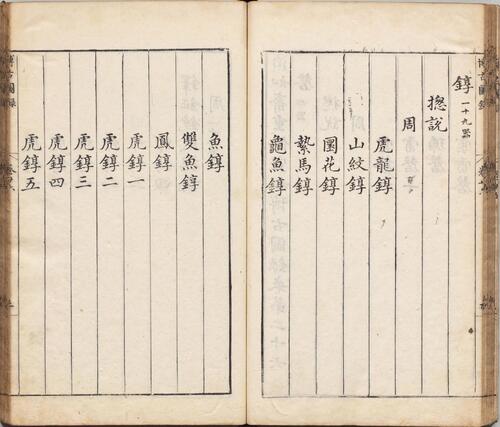 錞一十九器
摠說
周
虎龍錞
山紋錞
圜花錞
縶馬錞
龜魚錞
魚錞
雙魚錞
鳳錞
虎錞一
虎錞二
虎錞三
虎錞四
虎錞五
博古圖錄